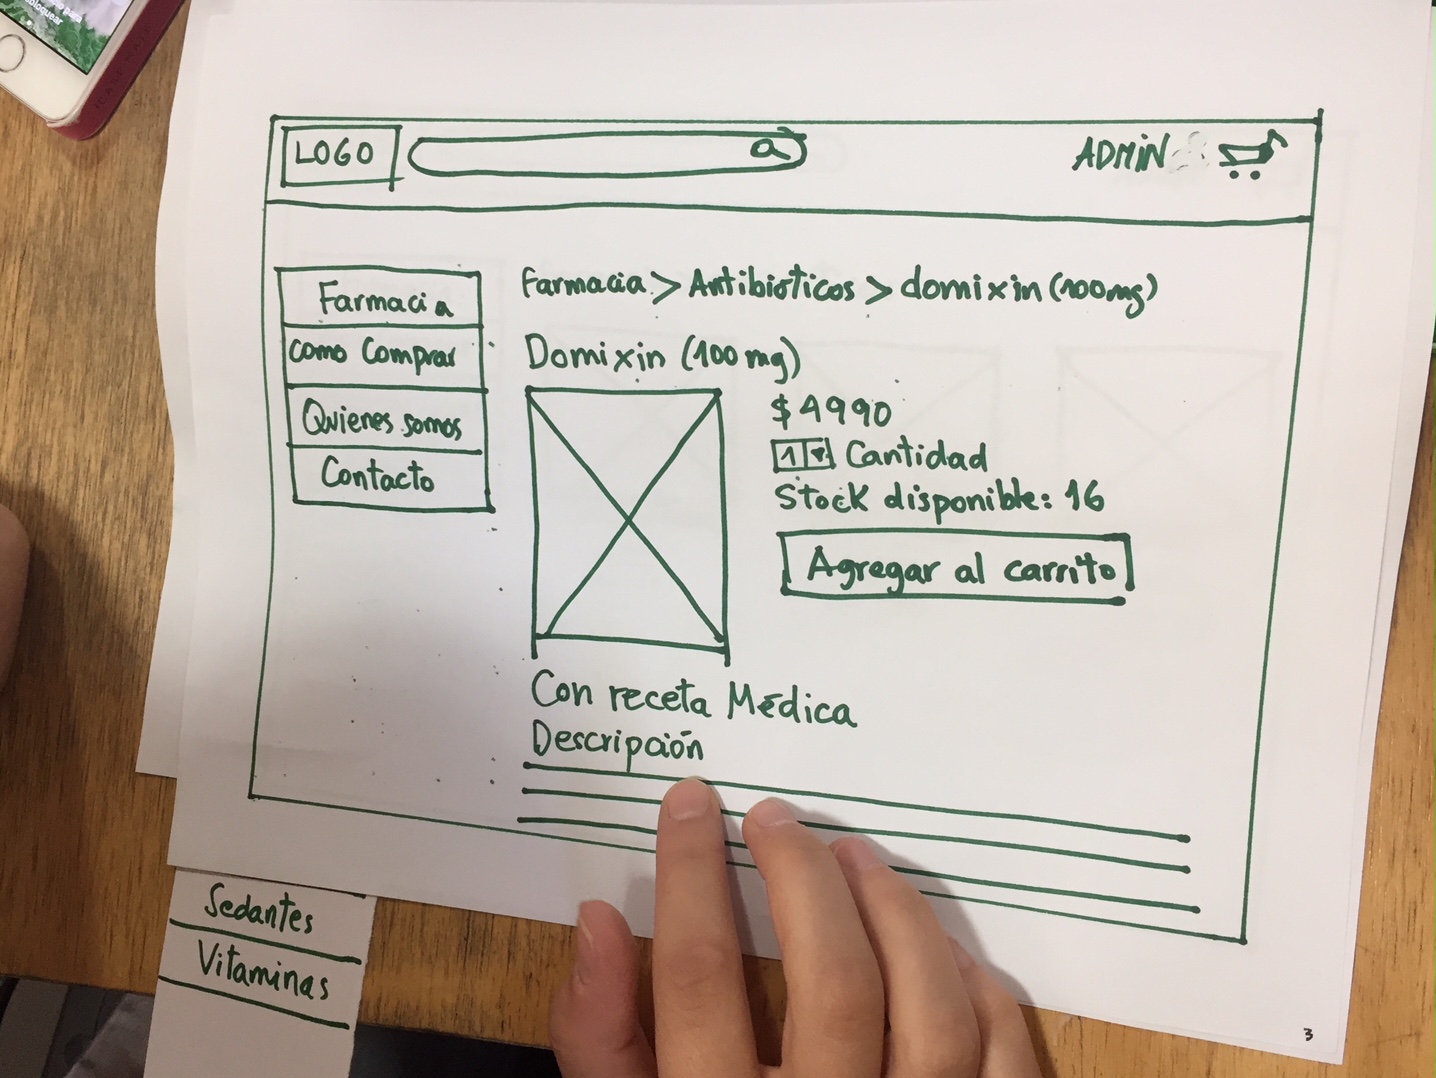 LOGO
ADMIN
Farmacia
Como Comprar
Quienes somos
Contacto
Farmacia > Antibióticos > domixin (100mg)
Domixin (100 mg)
$4990
1 Cantidad
Stock disponible: 16
Agregar al carrito
Con receta Médica
Descripción
Sedantes
Vitaminas
3